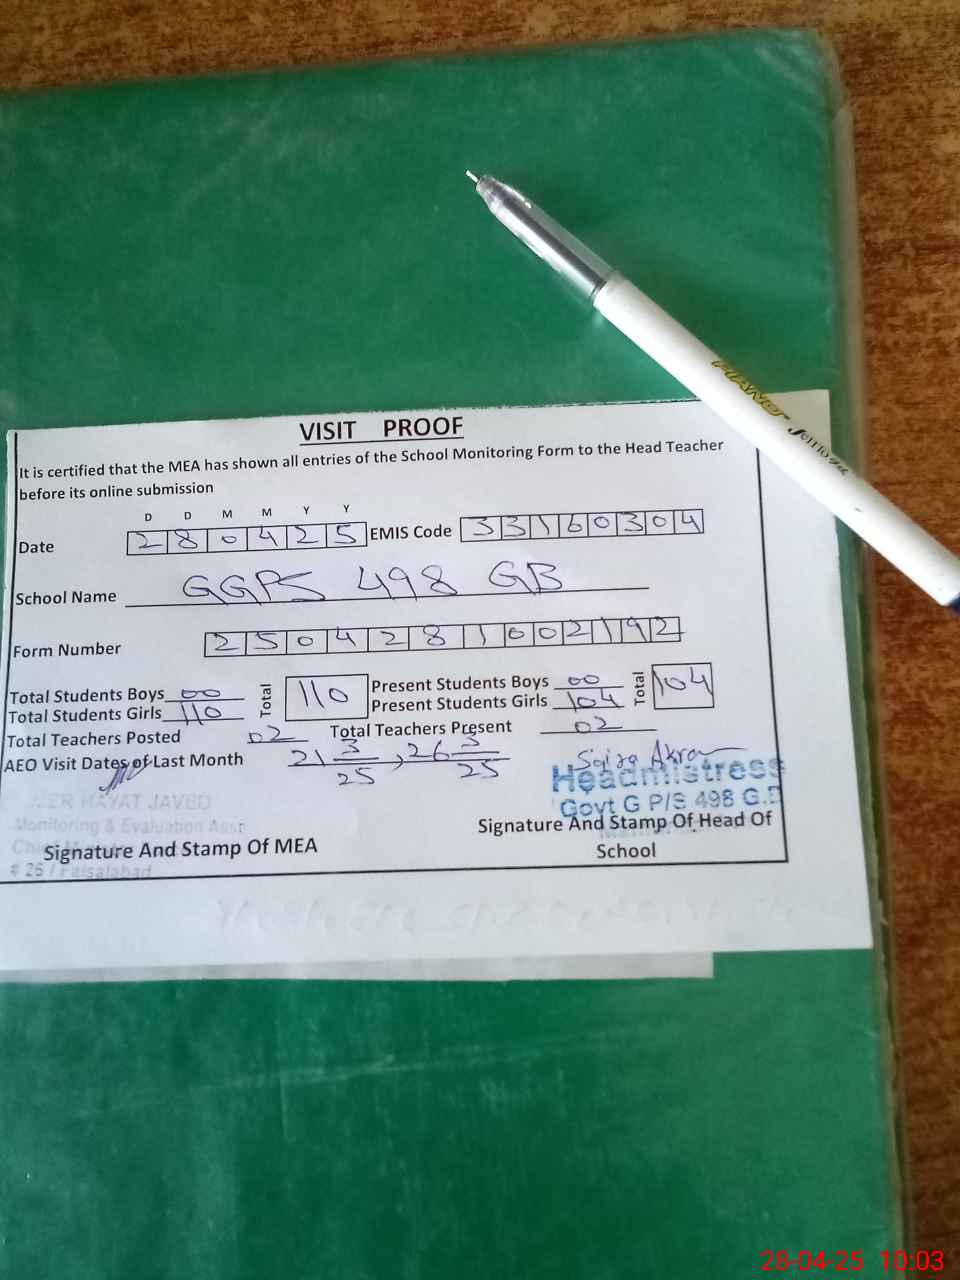 PIANO
VISIT PROOF
It is certified that the MEA has shown all entries of the School Monitoring Form to the Head Teacher
before its online submission
D D M M Y Y
Date 280425 EMIS Code 33160304
School Name GGPS 498 GB
Form Number 2504281002192
Total Students Boys 00 Total 110 Present Students Boys 00 Total 104
Total Students Girls 110 Present Students Girls 104
Total Teachers Posted 02 Total Teachers Present 02
AEO Visit Dates of Last Month 21 3/25, 26 3/25
Saira Akram
Headmistress
Govt G P/S 498 G.B
HAYAT JAVED
Monitoring & Evaluation Asst
Signature And Stamp Of MEA
# 26 / Faisalabad
Signature And Stamp Of Head Of
School
28-04-25 10:03